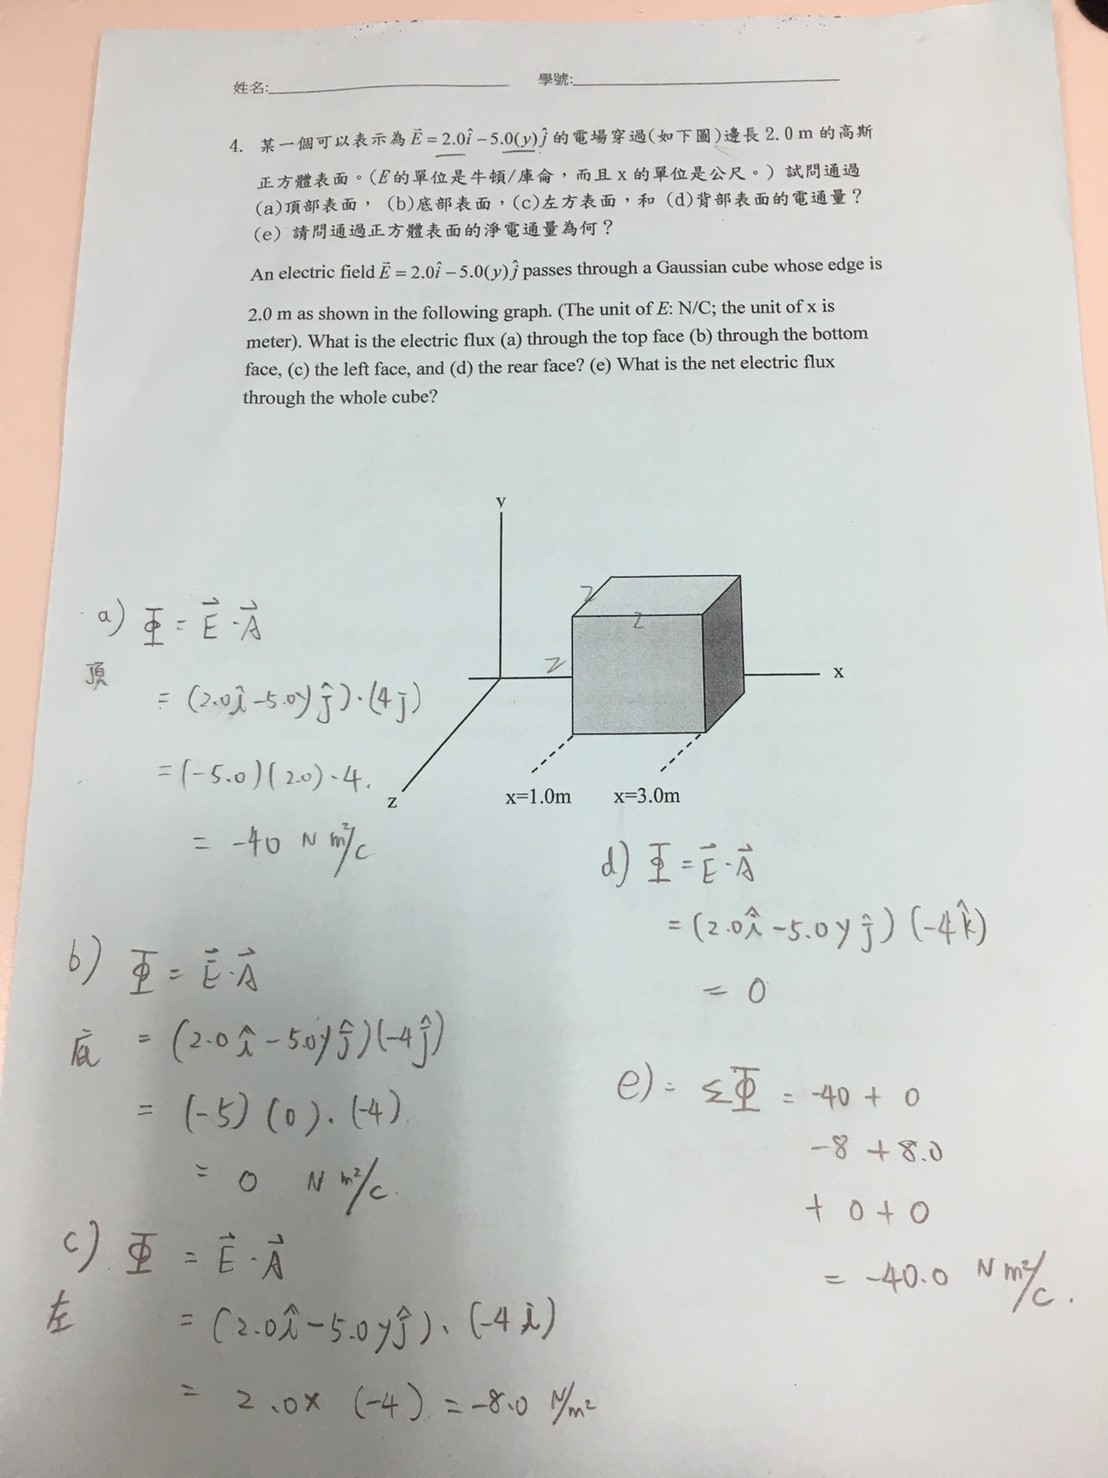 姓名:____________ 學號:____________
4. 某一個可以表示為 E⃗ = 2.0î − 5.0(y)ĵ 的電場穿過(如下圖)邊長 2.0 m 的高斯
正方體表面。(E的單位是牛頓/庫侖，而且 x 的單位是公尺。) 試問通過
(a)頂部表面， (b)底部表面，(c)左方表面，和 (d)背部表面的電通量？
(e) 請問通過正方體表面的淨電通量為何？
An electric field E⃗ = 2.0î − 5.0(y)ĵ passes through a Gaussian cube whose edge is
2.0 m as shown in the following graph. (The unit of E: N/C; the unit of x is
meter). What is the electric flux (a) through the top face (b) through the bottom
face, (c) the left face, and (d) the rear face? (e) What is the net electric flux
through the whole cube?
y
2
2
2
x
z
x=1.0m x=3.0m
a) Φ = E⃗ · A⃗
頂
= (2.0î − 5.0y ĵ) · (4j)
= (−5.0)(2.0) · 4.
= −40 N m²/C
b) Φ = E⃗ · A⃗
底 = (2.0î − 5.0yĵ)(−4ĵ)
= (−5)(0) · (−4)
= 0 N m²/C.
c) Φ = E⃗ · A⃗
左 = (2.0î − 5.0yĵ) · (−4i)
= 2.0 × (−4) = −8.0 N/m²
d) Φ = E⃗ · A⃗
= (2.0î − 5.0yĵ)(−4k̂)
= 0
e) = ΣΦ = −40 + 0
−8 + 8.0
+ 0 + 0
= −40.0 N m²/C.